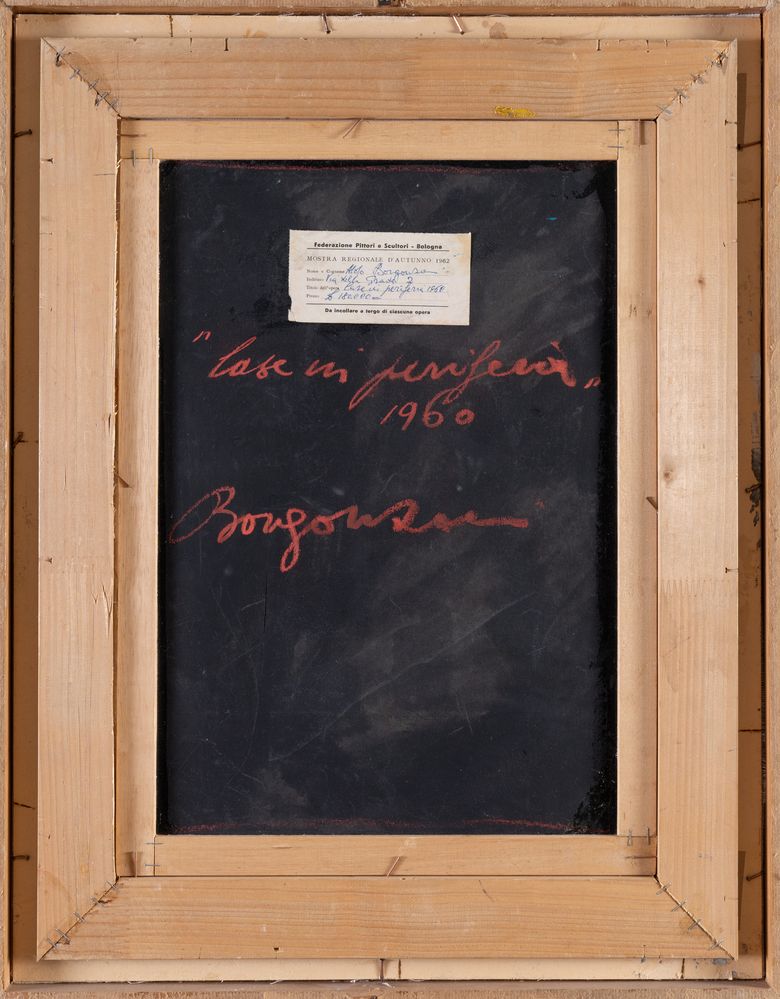 Federazione Pittori e Scultori - Bologna
MOSTRA REGIONALE D'AUTUNNO 1962
Nome e Cognome Aldo Borgonzoni
Indirizzo Via della Grada 7
Titolo dell'opera Case in periferia 1960
Prezzo £ 180.000
Da incollare a tergo di ciascuna opera
"Case in periferia"
1960
Borgonzoni